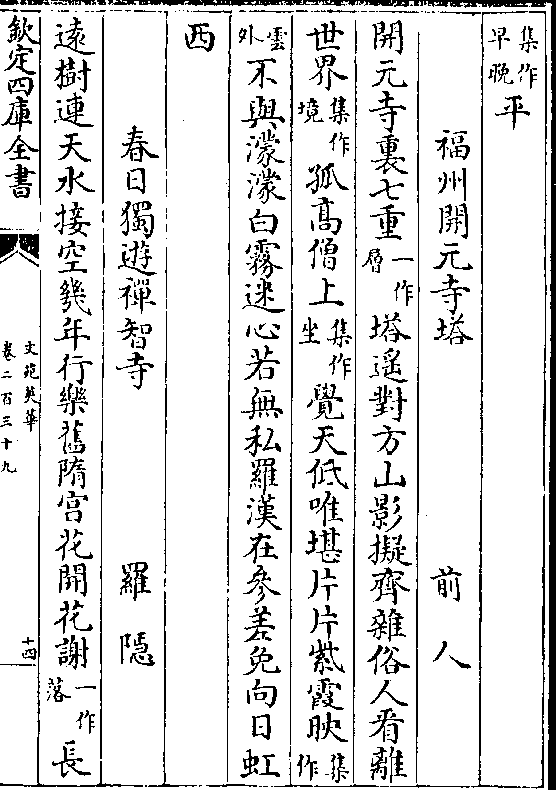 集作早晚平
福州開元寺塔 前人
開元寺裏七重一作層塔遙對方山影擬齊雜俗人看離
世界集作境孤高僧上集作坐覺天低唯堪片片紫霞映集作
雲外不與濛濛白霧迷心若無私羅漢在參差免向日虹
西
春日獨遊禪智寺 羅隱
遠樹連天水接空幾年行樂舊隋宮花開花謝一作落長
欽定四庫全書 文苑英華 卷二百三十九 十四